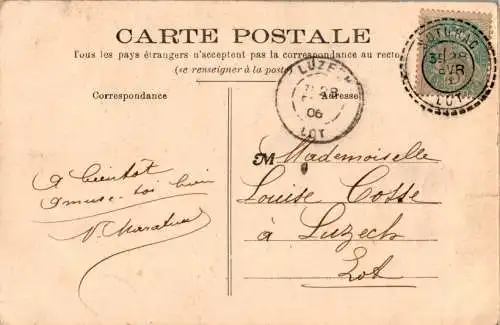 CARTE POSTALE
Tous les pays étrangers n'acceptent pas la correspondance au recto
(se renseigner à la poste)
Correspondance
Adresse
LUZECH
28
06
LOT
LOT
A bientôt
amuse-toi bien
M Mademoiselle
Louise Cosse
à Luzech
Lot